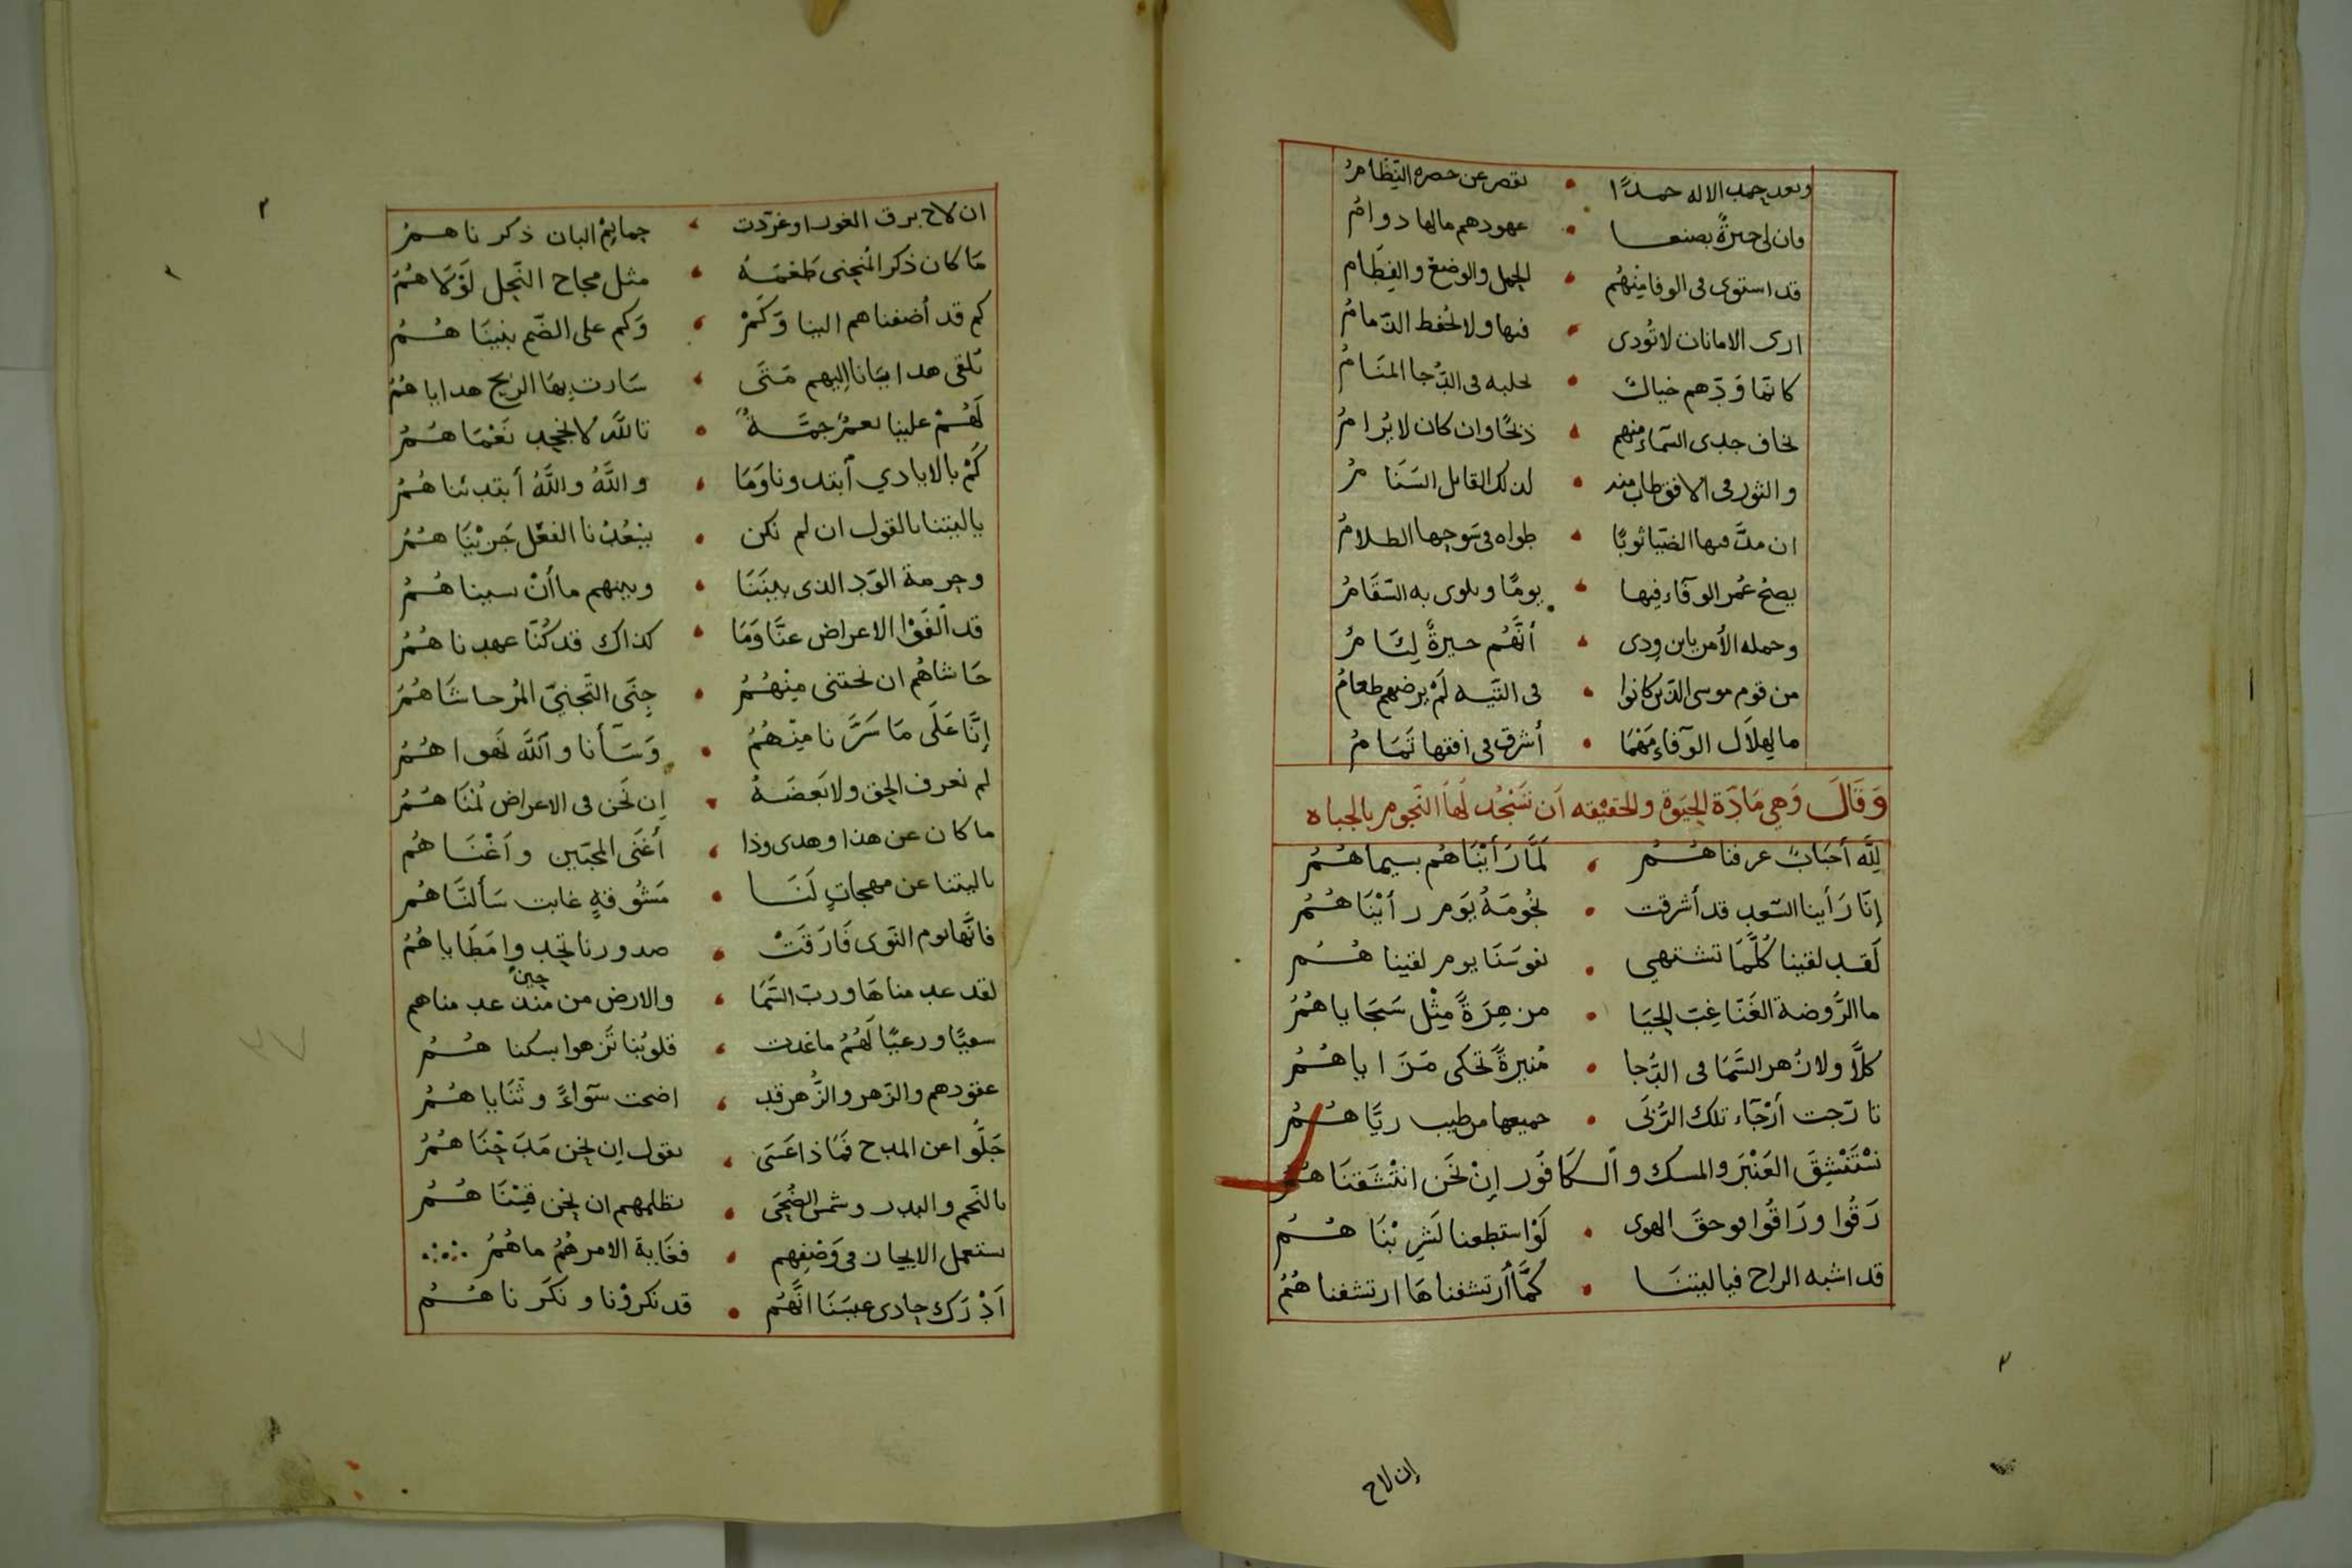 وبعد حمد الاله حمدًا • نقصر عن حصره النِّظَامُ
وان لي جيرةً بصنعا • عهودهم مالها دوامُ
قد استوى فى الوفا مِنْهُم • الحمل والوضع والفِطَام
ارى الامانات لا تُودى • فيها ولا تحفظ الذمامُ
كانمّا وَدّهم خيالٌ • المنَامُ
يخاف جدى السماء منهم • ذبحًا وان كان لا يُرامُ
والثور فى الافق طاب منه •
ان مدَّ فيها الضيا ثوبًا • طواه فى الظلامُ
يصحُ عُمر الوفَاء فيها • يومًا ويلوى به السَّقَامُ
وجملة الأمر يابن ودى • أنَّهُم جيرةٌ لِئَامُ
من قوم موسى الذين كانوا • فى التيه لَمْ يرضهم طعامُ
ما لِهلَال الوَفاء مَهْمَا • أشرق فى افقها تَمَامُ
وَقَالَ وَهِي مَادّة الحيَوة والحقيقه اَن تسْجُد لَهاَ النّجوم بالجباه
لِلَّه أَحبَابٌ عرفناهُمُ • لَمَّا رَأيْنَاهُم بسيماهُمُ
إنّا رَأينا السّعد قد أشرقت • نجُومَهُ يَوم رأيْنَاهُمُ
لَقد لقينا كُلَّمَا تشتهي • نفوسَنَا يوم لقيناهُمُ
ما الرَّوضة الغَنّا غِبّ الحَيَا • من هِزَةً مِثْل سَجَاياهُمُ
كلّاَ ولا زُهر السَّمَا فى الدُّجا • مُنيرةً تحكى مَزَاياهُمُ
تارّجت أرْجَاء تلك الرُّبَى • جميعها من طيب ريَّاهُمُ
نسْتَنْشِقَ العَنْبَر والمسك والكَافُور إنْ نحَن انتْشَقنَاهُمُ
رَقُوا ورَاقُوا فوحقَ الهوى • لَوْ استطعنا لَشَرِبْنَاهُمُ
قد اشبه الراح فياليتنَا • كمَّا أرتشفناهَا ارتشفناهُمُ
إن لاح
ان لاح برق الغور اوغرّدت • حمايمُ البان ذكرناهمُ
مَا كان ذكر المُنحنى طَعْمَهُ • مثل مجاج النّحل لَوْلَاهُمُ
كم قد أضفناهم الينا وَكَمْ • وَكم على الضّم بنينَاهُمُ
تلقى هدايانا إليهم مَتَى • سَارت بِهَا الريح هداياهُمُ
لَهُمْ علينا نعمٌ جمَّةٌ • تاللَّه لا نجحد نَعْمَاهُمُ
كَمْ بالايادي أبتدونا وَمَا • واللَّهُ واللَّهُ أبتدئناهُمُ
ياليتنا بالقول ان لم نكن • يَنعُدُنا الفعْل جَزيْنَاهُمُ
وحرمة الوّد الذى بينَنَا • وبينهم ما أنْ نسيناهُمُ
قد ألْفَوْا الاعراض عنَّا وَمَا • كذاك قد كُنّا عهدناهُمُ
حَاشاهُم ان نجتنى مِنْهُمُ • جِنَى التّجنيّ المُر حاشَاهُمُ
إنَّا عَلَى مَا سَرَّنا مِنْهُمُ • وَسَأنا واللَّه نَهواهُمُ
لم نعرف الحق ولا بَعضَهُ • إن نَحن فى الاعراض لُمْنَاهُمُ
ما كان عن هذا وهدى وذا • أغنَى المحبّين وأغْنَاهُم
ياليتنا عن مهجاتٍ لَنَا • مَشُوقةٍ غابت سَألنَاهُم
فانَّها يوم النّوى فَارَقَتْ • صدورنا تحْدوا مَطَاياهُمُ
لقد عدمناهَا وربّ السَّمَا • والارض من منذ حينٍ عدمناهم
سقيًا ورعيًا لَهُمُ ما غدت • قلوبُنا تَزهوا بسكناهُمُ
عقودهم والزّهر والزُّهر قد • اضحت سَوآءً وثَنَاياهُمُ
جَلَّوا عن المدح فَمَاذا عَسَى • نقول إن نحن مَدَحْنَاهُمُ
بالنّجم والبدر وشمس الضُحَى • نظلمهم ان نحن قِسْنَاهُمُ
نستعمل الايجاز فى وَصْفِهم • فغَاية الامر هُمُ ماهُمُ
اَدْرَك حادى عيسَنَا انَّهُم • قد نكروْنا ونكَرناهُمُ